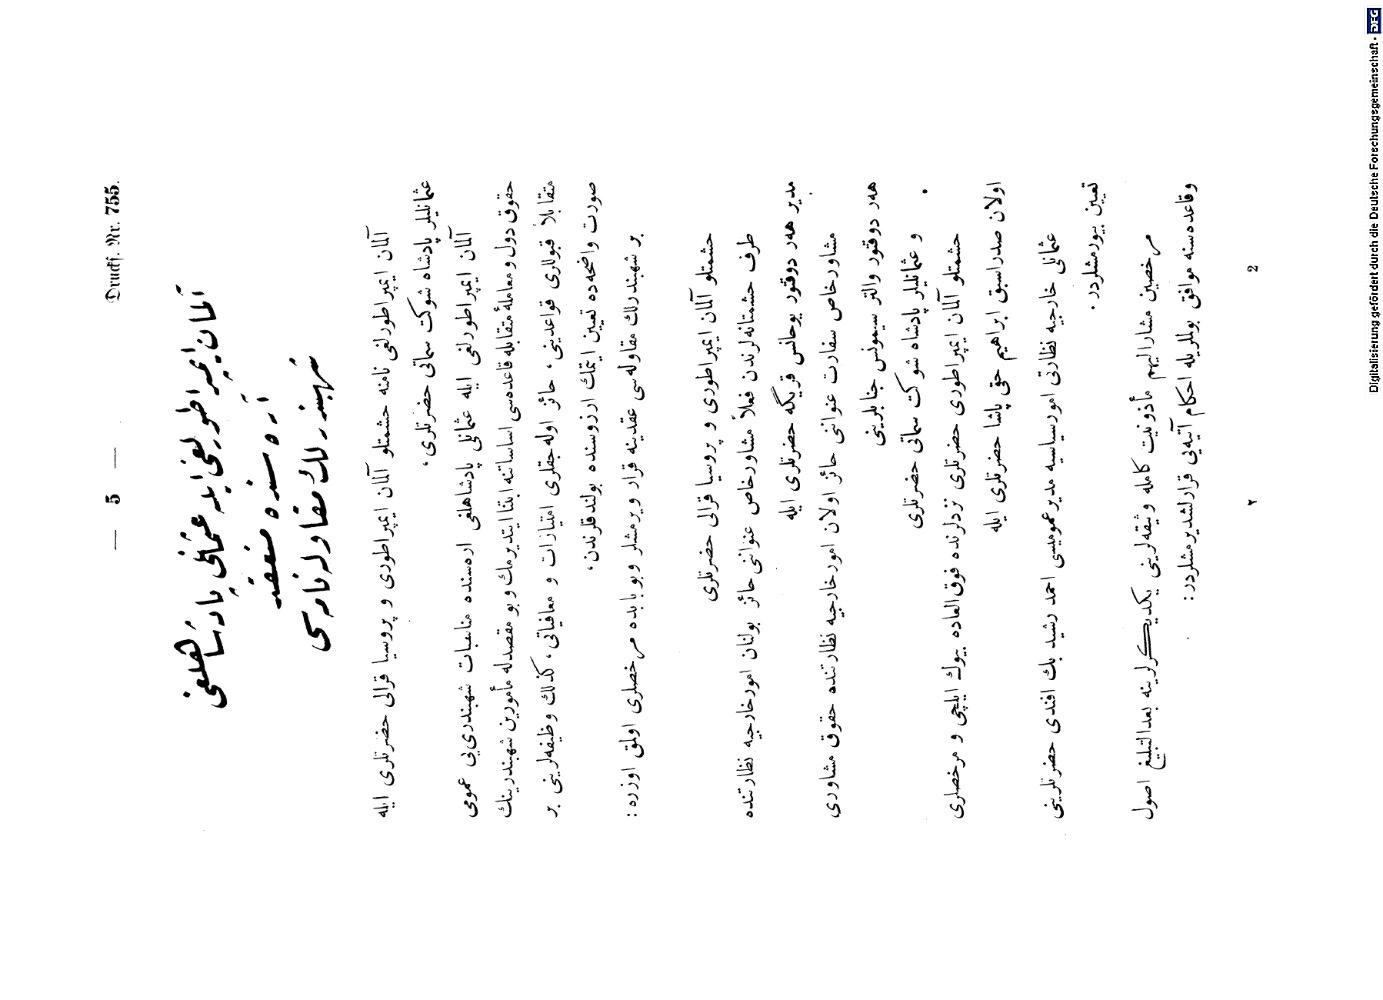 — 5 —
Drucks. Nr. 755.
آلمان ایمپراطورلغی ایله عثمانلی پادشاهلغی
آره سنده منعقد
شهبندرلك مقاوله نامه سی
آلمان ایمپراطورلغی نامنه حشمتلو آلمان ایمپراطوری و پروسیا قرالی حضرتلری ایله
عثمانلیلر پادشاه شوكت سماتی حضرتلری،
آلمان ایمپراطورلغی ایله عثمانلی پادشاهلغی اره‌سنده مناسبات شهبندری‌یی عمومی
حقوق دول و معاملهٔ متقابله قاعده‌سی اساساتنه ابتنا ایتدیرمك و بو مقصدله مأمورین شهبندرینك
متقابلاً قبوللری قواعدینی، حائز اوله‌جقلری امتیازات و معافیاتی، كذلك وظیفه‌لرینی بر
صورت واضحه‌ده تعیین ایتمك ارزوسنده بولندقلرندن،
بر شهبندرلك مقاوله‌سی عقدینه قرار ویرمشلر و بو بابده مرخصلری اولمق اوزره :
حشمتلو آلمان ایمپراطوری و پروسیا قرالی حضرتلری
طرف حشمتانه‌لرندن فعلاً مشاور خاص عنوانی حائز بولنان امور خارجیه نظارتنده
مدیر هەر دوقتور یوحانس قریگه حضرتلری ایله
مشاور خاص سفارت عنوانی حائز اولان امور خارجیه نظارتنده حقوق مشاوری
هەر دوقتور والتر سیمونس جنابلرینی
و عثمانلیلر پادشاه شوكت سماتی حضرتلری
حشمتلو آلمان ایمپراطوری حضرتلری نزدلرنده فوق‌العاده بیوك ایلچی و مرخصلری
اولان صدر اسبق ابراهیم حقی پاشا حضرتلری ایله
عثمانلی خارجیه نظارتی امور سیاسیه مدیر عمومیسی احمد رشید بك افندی حضرتلرینی
تعیین بیورمشلردر.
مرخصین مشار الیهم مأذونیت كامله وثیقه‌لرینی یكدیگرلرینه بعد التبلیغ اصول
وقاعده‌سنه موافق بولملریله احكام آتیه‌یی قرارلشدیرمشلردر :
۲
2
Digitalisierung gefördert durch die Deutsche Forschungsgemeinschaft · DFG